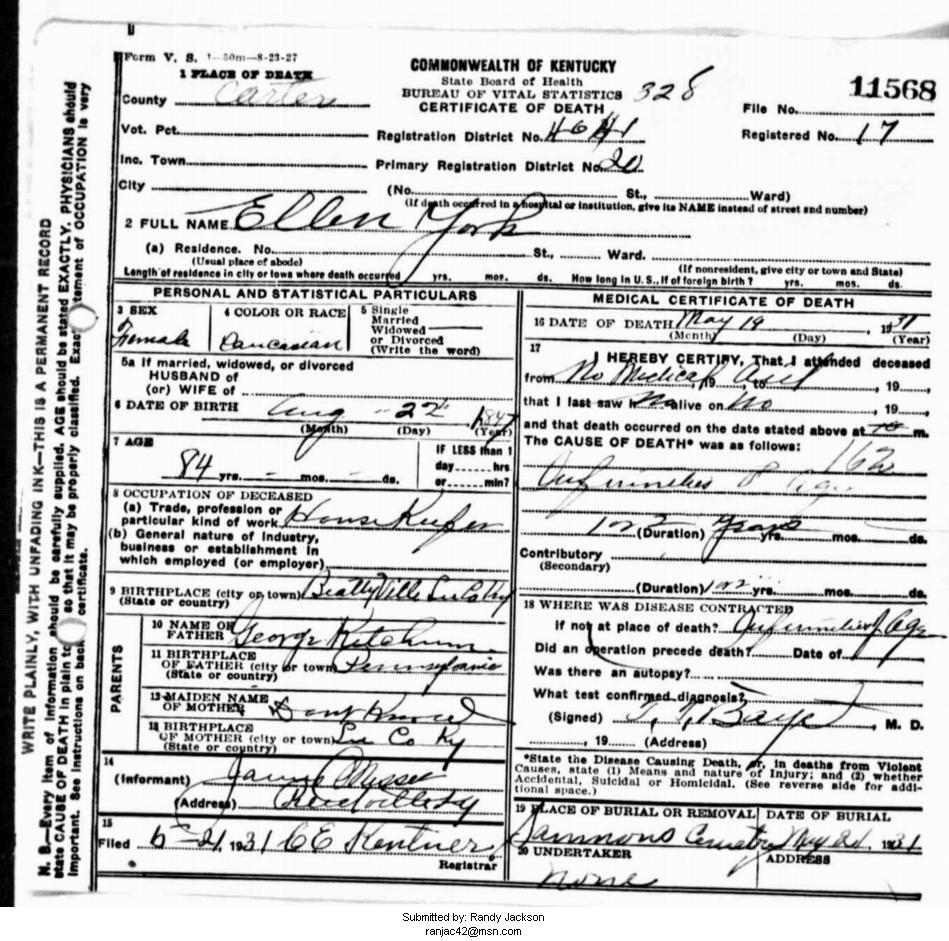 Form V. S. 1—50m—8-23-27
COMMONWEALTH OF KENTUCKY
State Board of Health
BUREAU OF VITAL STATISTICS
CERTIFICATE OF DEATH
328
11568
1 PLACE OF DEATH
County Carter
File No.
Vot. Pct.
Registration District No. 4641
Registered No. 17
Inc. Town
Primary Registration District No. 20
City
(No. St., Ward)
(If death occurred in a hospital or institution, give its NAME instead of street and number)
2 FULL NAME Ellen York
(a) Residence. No. St., Ward.
(Usual place of abode)
(If nonresident, give city or town and State)
Length of residence in city or town where death occurred yrs. mos. ds. How long in U. S., if of foreign birth? yrs. mos. ds.
PERSONAL AND STATISTICAL PARTICULARS
3 SEX
Female
4 COLOR OR RACE
Caucasian
5 Single
Married
Widowed
or Divorced
(Write the word)
5a If married, widowed, or divorced
HUSBAND of
(or) WIFE of
6 DATE OF BIRTH Aug 22 1847
(Month) (Day) (Year)
7 AGE
84 yrs. mos. ds.
IF LESS than 1
day hrs
or min?
8 OCCUPATION OF DECEASED
(a) Trade, profession or
particular kind of work House Keeper
(b) General nature of industry,
business or establishment in
which employed (or employer)
9 BIRTHPLACE (city or town) Beattyville Lee Co Ky
(State or country)
PARENTS
10 NAME OF
FATHER George Ketchum
11 BIRTHPLACE
OF FATHER (city or town) Pennsylvania
(State or country)
12 MAIDEN NAME
OF MOTHER Dont Know
13 BIRTHPLACE
OF MOTHER (city or town) Lee Co Ky
(State or country)
14
(Informant) James
(Address) Ky
15
Filed 6-21, 1931 C E Kentner
Registrar
MEDICAL CERTIFICATE OF DEATH
16 DATE OF DEATH May 19, 1931
(Month) (Day) (Year)
17
I HEREBY CERTIFY, That I attended deceased
from No Medical 19 , to Aid , 19 ,
that I last saw h alive on No , 19 ,
and that death occurred on the date stated above at m.
The CAUSE OF DEATH* was as follows:
162
Infirmities of Age
(Duration) Years yrs. mos. ds.
Contributory
(Secondary)
(Duration) yrs. mos. ds.
18 WHERE WAS DISEASE CONTRACTED
If not at place of death? Infirmities of Age
Did an operation precede death? Date of
Was there an autopsy?
What test confirmed diagnosis?
(Signed) , M. D.
, 19 (Address)
*State the Disease Causing Death, or, in deaths from Violent
Causes, state (1) Means and nature of Injury; and (2) whether
Accidental, Suicidal or Homicidal. (See reverse side for addi-
tional space.)
19 PLACE OF BURIAL OR REMOVAL
Sammons Cemetry
DATE OF BURIAL
May 21, 1931
20 UNDERTAKER
none
ADDRESS
WRITE PLAINLY, WITH UNFADING INK—THIS IS A PERMANENT RECORD
N. B.—Every item of information should be carefully supplied. AGE should be stated EXACTLY. PHYSICIANS should
state CAUSE OF DEATH in plain so that it may be properly classified. Exact statement of OCCUPATION is very
important. See instructions on back certificate.
Submitted by: Randy Jackson
ranjac42@msn.com